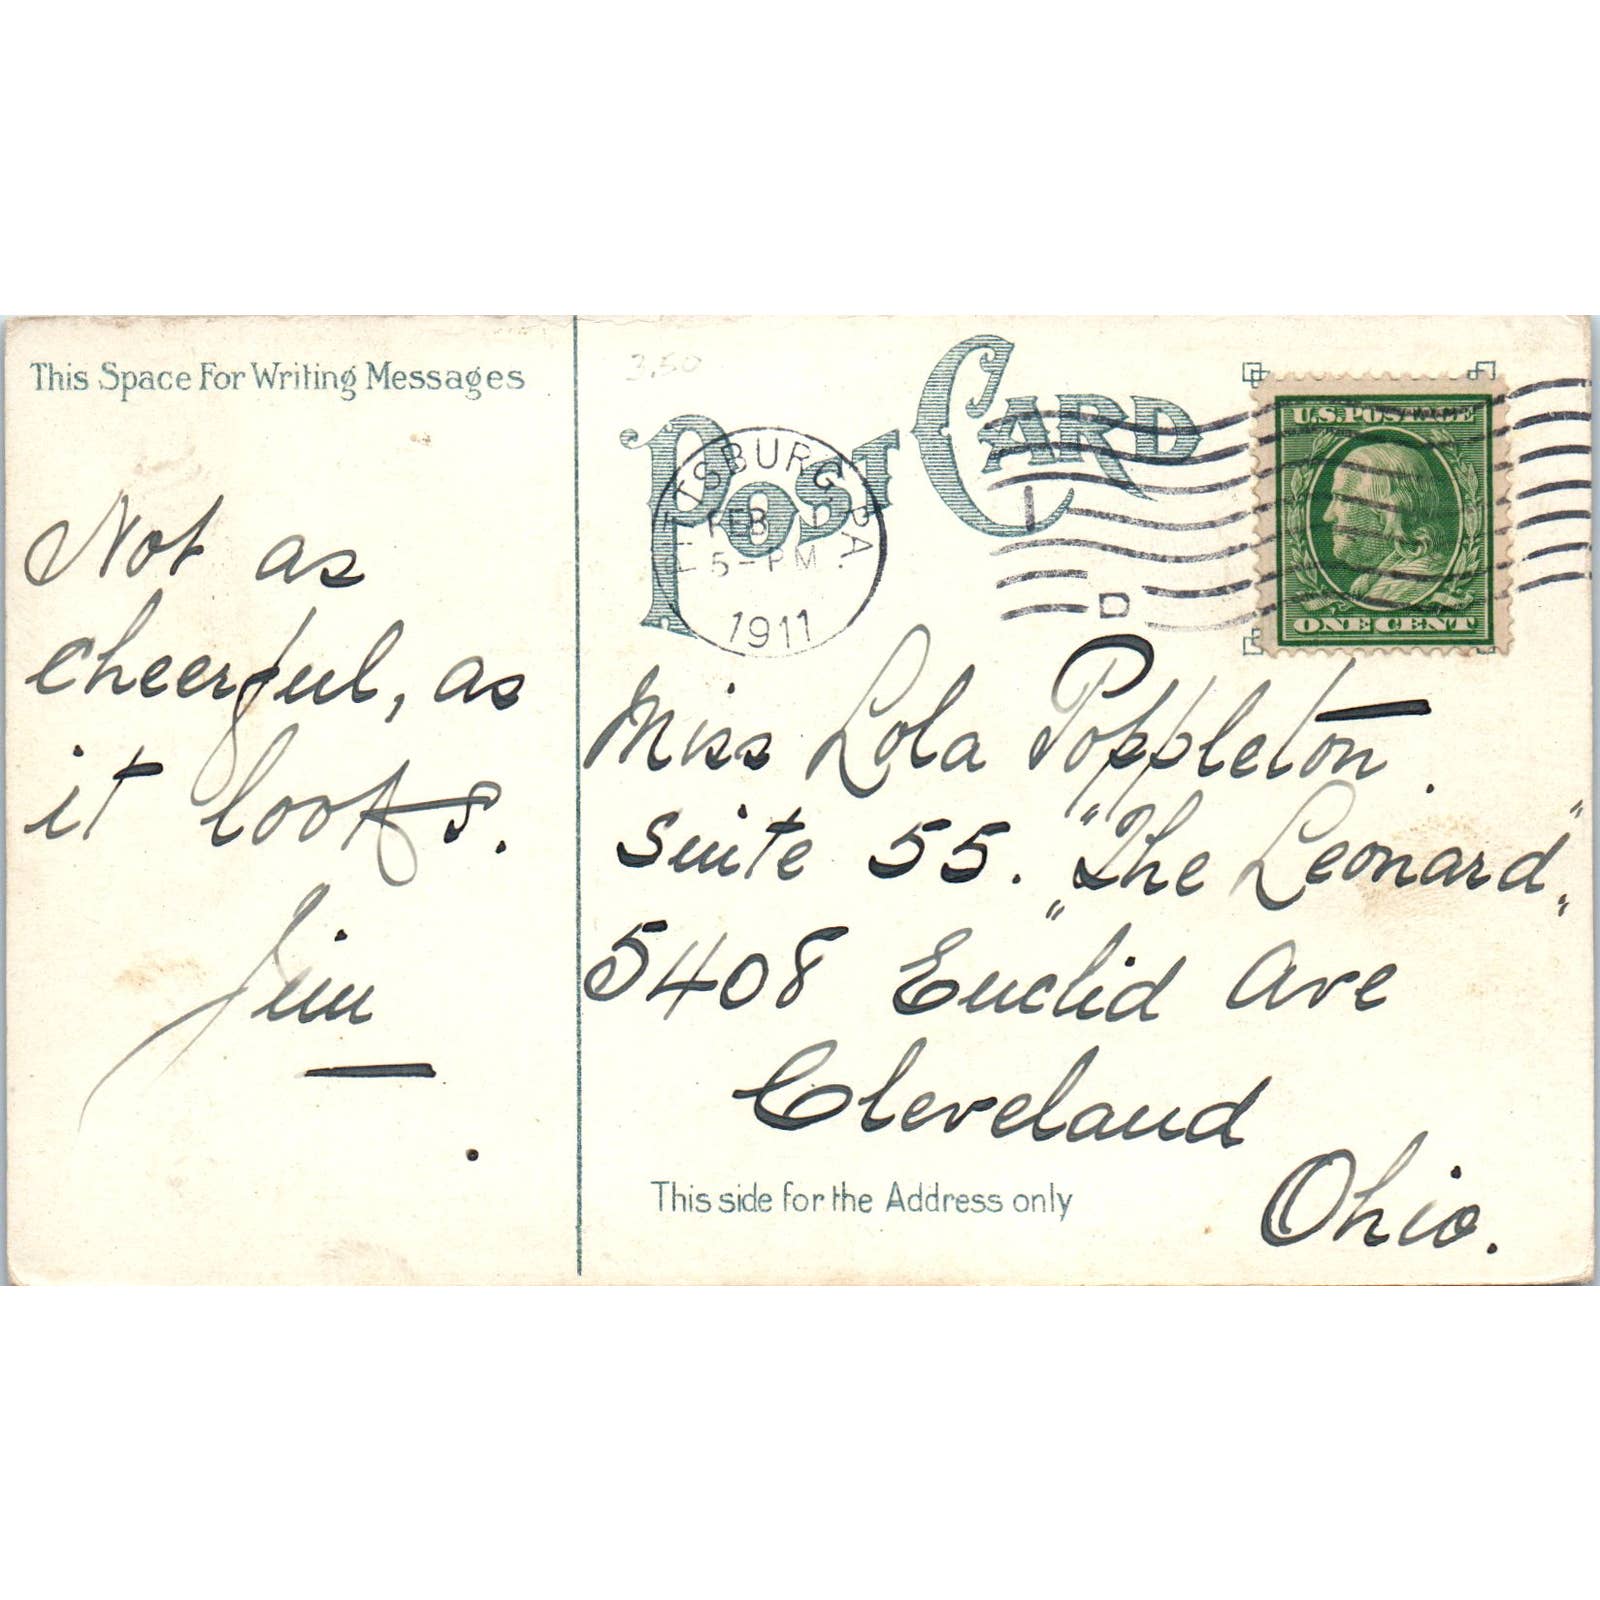 This Space For Writing Messages
Not as
cheerful, as
it looks.
Jim
3.50
POST CARD
PITTSBURG, PA.
FEB
5-PM
1911
1
D
U.S. POSTAGE
ONE CENT
Miss Lola Poppleton.
Suite 55. "The Leonard"
5408 Euclid Ave
Cleveland
Ohio.
This side for the Address only